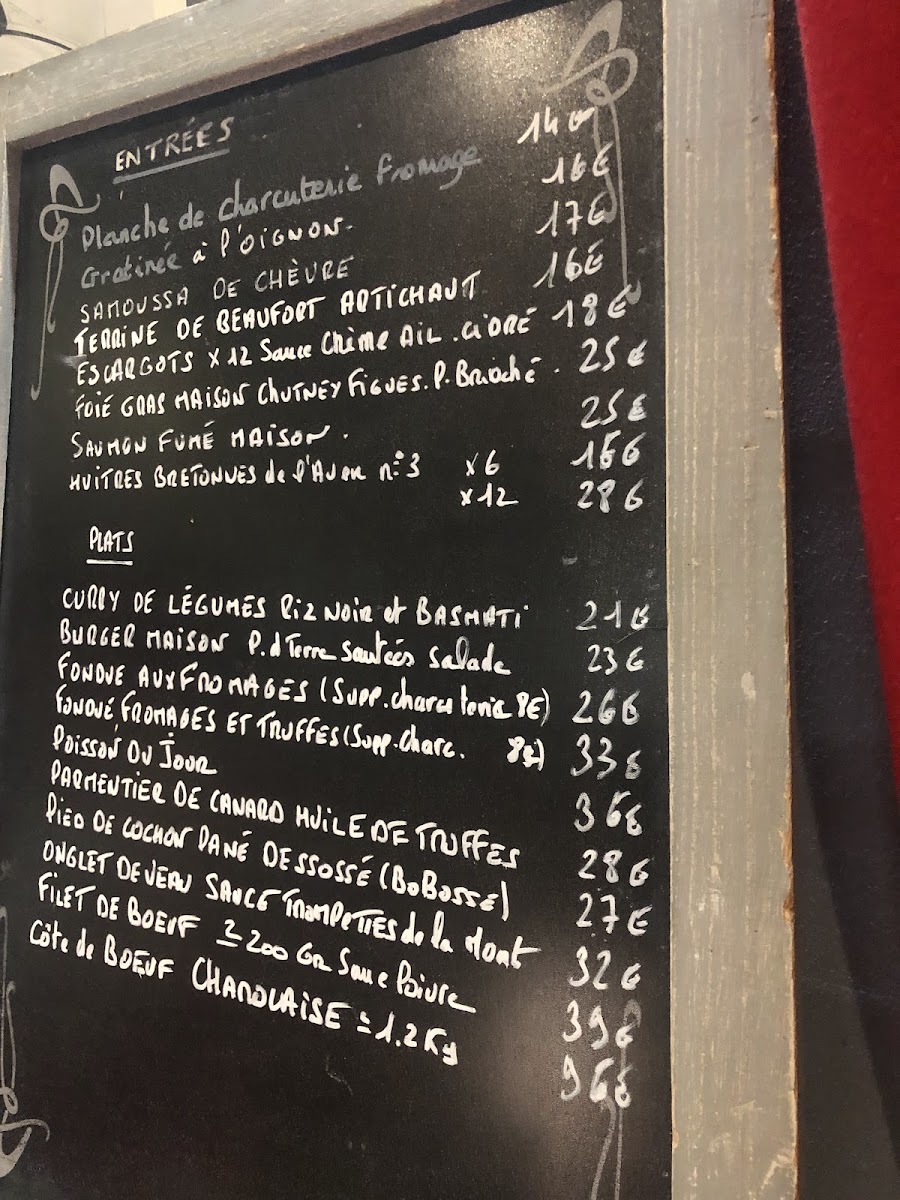 ENTRÉES
Planche de charcuterie fromage 14€
Gratinée à l'OIGNON. 16€
SAMOUSSA DE CHÈVRE 17€
TERRINE DE BEAUFORT ARTICHAUT 16€
ESCARGOTS x12 Sauce Chème AIL . CIDRÉ 18€
FOIÉ GRAS MAISON CHUTNEY FIGUES. P. Brioché . 25€
SAUMON FUMÉ MAISON . 25€
HUITRES BRETONNES de l'Aven n°3 x6 16€
x12 28€
PLATS
CURRY DE LÉGUMES RIZ NOIR et BASMATI 21€
BURGER MAISON P. d Terre Sautées Salade 23€
FONDUE AUX FROMAGES (Supp. charcuterie 8€) 26€
FONDUÉ FROMAGES ET TRUFFES (Supp. Charc. 8€) 33€
POISSON DU JOUR 36€
PARMENTIER DE CANARD HUILE DE TRUFFES 28€
PIED DE COCHON PANÉ DESSOSSÉ (BOBOSSE) 27€
ONGLET DE VEAU SAUCE TROMPETTES de la Mort 32€
FILET DE BOEUF ≃ 200 Gr Sauce Poivre 39€
Côte de BOEUF CHAROLAISE ≃ 1.2 Kg 96€